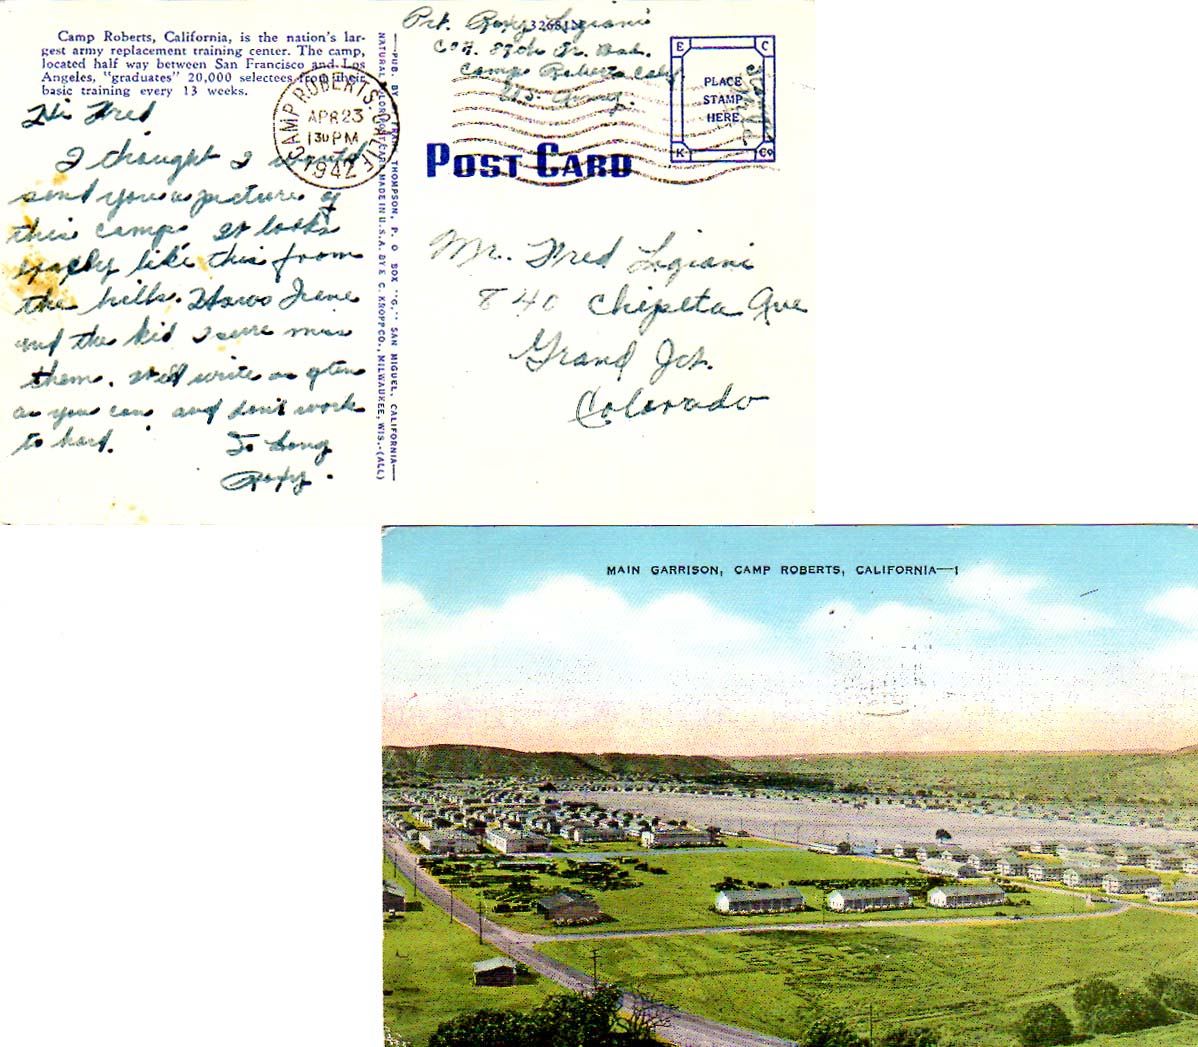 Camp Roberts, California, is the nation's lar-
gest army replacement training center. The camp,
located half way between San Francisco and Los
Angeles, "graduates" 20,000 selectees from their
basic training every 13 weeks.
Hi Fred
I thought I would
send you a picture of
this camp. It looks
exactly like this from
the hills. Hows Irene
and the kid I sure miss
them. Well write as often
as you can and don't work
to hard.
So Long
Roxy.
CAMP ROBERTS. CALIF.
APR 23
130 PM
1942
—PUB. BY THOMPSON, P. O BOX "G," SAN MIGUEL, CALIFORNIA—
NATURAL COLOR POST CARD MADE IN U.S.A. BY E. C. KROPP CO., MILWAUKEE, WIS.—(ALL)
Pvt. Roxy Ligiani
Co A. 89th Bat.
Camp Roberts Calif
US. Army.
POST CARD
E C
PLACE
STAMP
HERE
K Co
Mr. Fred Ligiani
840 Chipeta Ave
Grand Jct.
Colorado
MAIN GARRISON, CAMP ROBERTS, CALIFORNIA—1